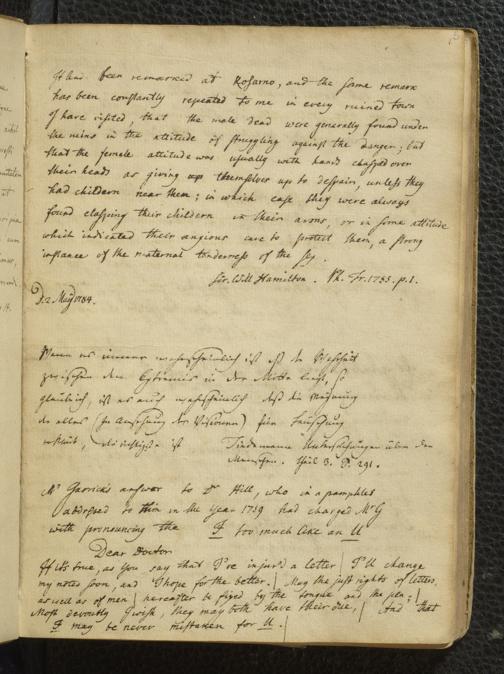 It had been remarked at Rosarno, and the same remark
has been constantly repeated to me in every ruined town
I have visited, that the male dead were generally found under
the ruins in the attitude of struggling against the danger; but
that the female attitude was usually with hands clasped over
their heads as giving up themselves up to despair, unless they
had childern near them; in which case they were always
found clasping their childern in their arms, or in some attitude
which indicated their anxious care to protect them, a strong
instance of the maternal tenderness of the sex.
Sir. Will Hamilton. Ph. Tr. 1783. p. 1.
D. 2. May 1784.
Wenn es immer wahrscheinlich ist daß die Wahrheit
zwischen den Extremis in der Mitte liegt, so
glaublich, ist es auch wahrscheinlich daß die Meinung
der alles (in Ansehung der Visionen) für Täuschung
erklärt, die richtigste ist
Tiedemanns Untersuchungen über den
Menschen. Theil 3. P. 291.
Mr Garrick's answer to Dr Hill, who in a pamphlet
addressed to him in the year 1759 had charged Mr G
with pronouncing the I too much like an U
Dear Doctor
If it's true, as you say that I've injur'd a letter | I'll change
my notes soon, and I hope for the better. | May the just rights of letters,
as well as of men | hereafter be fixed by the tongue and the pen; |
Most devoutly I wish, they may both have their due, | And that
I may be never mistaken for U. |